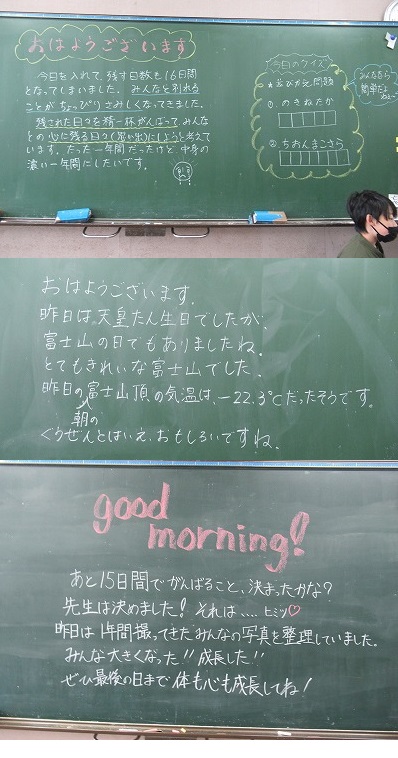 おはようございます
今日を入れて、残す日数も16日間
となってしまいました。みんなと別れる
ことがちょっぴりさみしくなってきました。
残された日々を精一杯がんばって、みんな
との心に残る日々(思い出)にしようと考えて
います。たった一年間だったけど、中身の
濃い一年間にしたいです。
今日のクイズ
★ならびかえ問題
① のきねたか
② ちおんまこさら
みんななら
簡単だよ
ね〜
おはようございます。
昨日は天皇たん生日でしたが、
富士山の日でもありましたね。
とてもきれいな富士山でした。
昨日の朝の富士山頂の気温は、-22.3℃だったそうです。
ぐうぜんとはいえ、おもしろいですね。
good
morning!
あと15日間でがんばること、決まったかな?
先生は決めました! それは.... ヒミツ♡
昨日は1年間撮ってきたみんなの写真を整理していました。
みんな大きくなった!! 成長した!!
ぜひ最後の日まで体も心も成長してね!